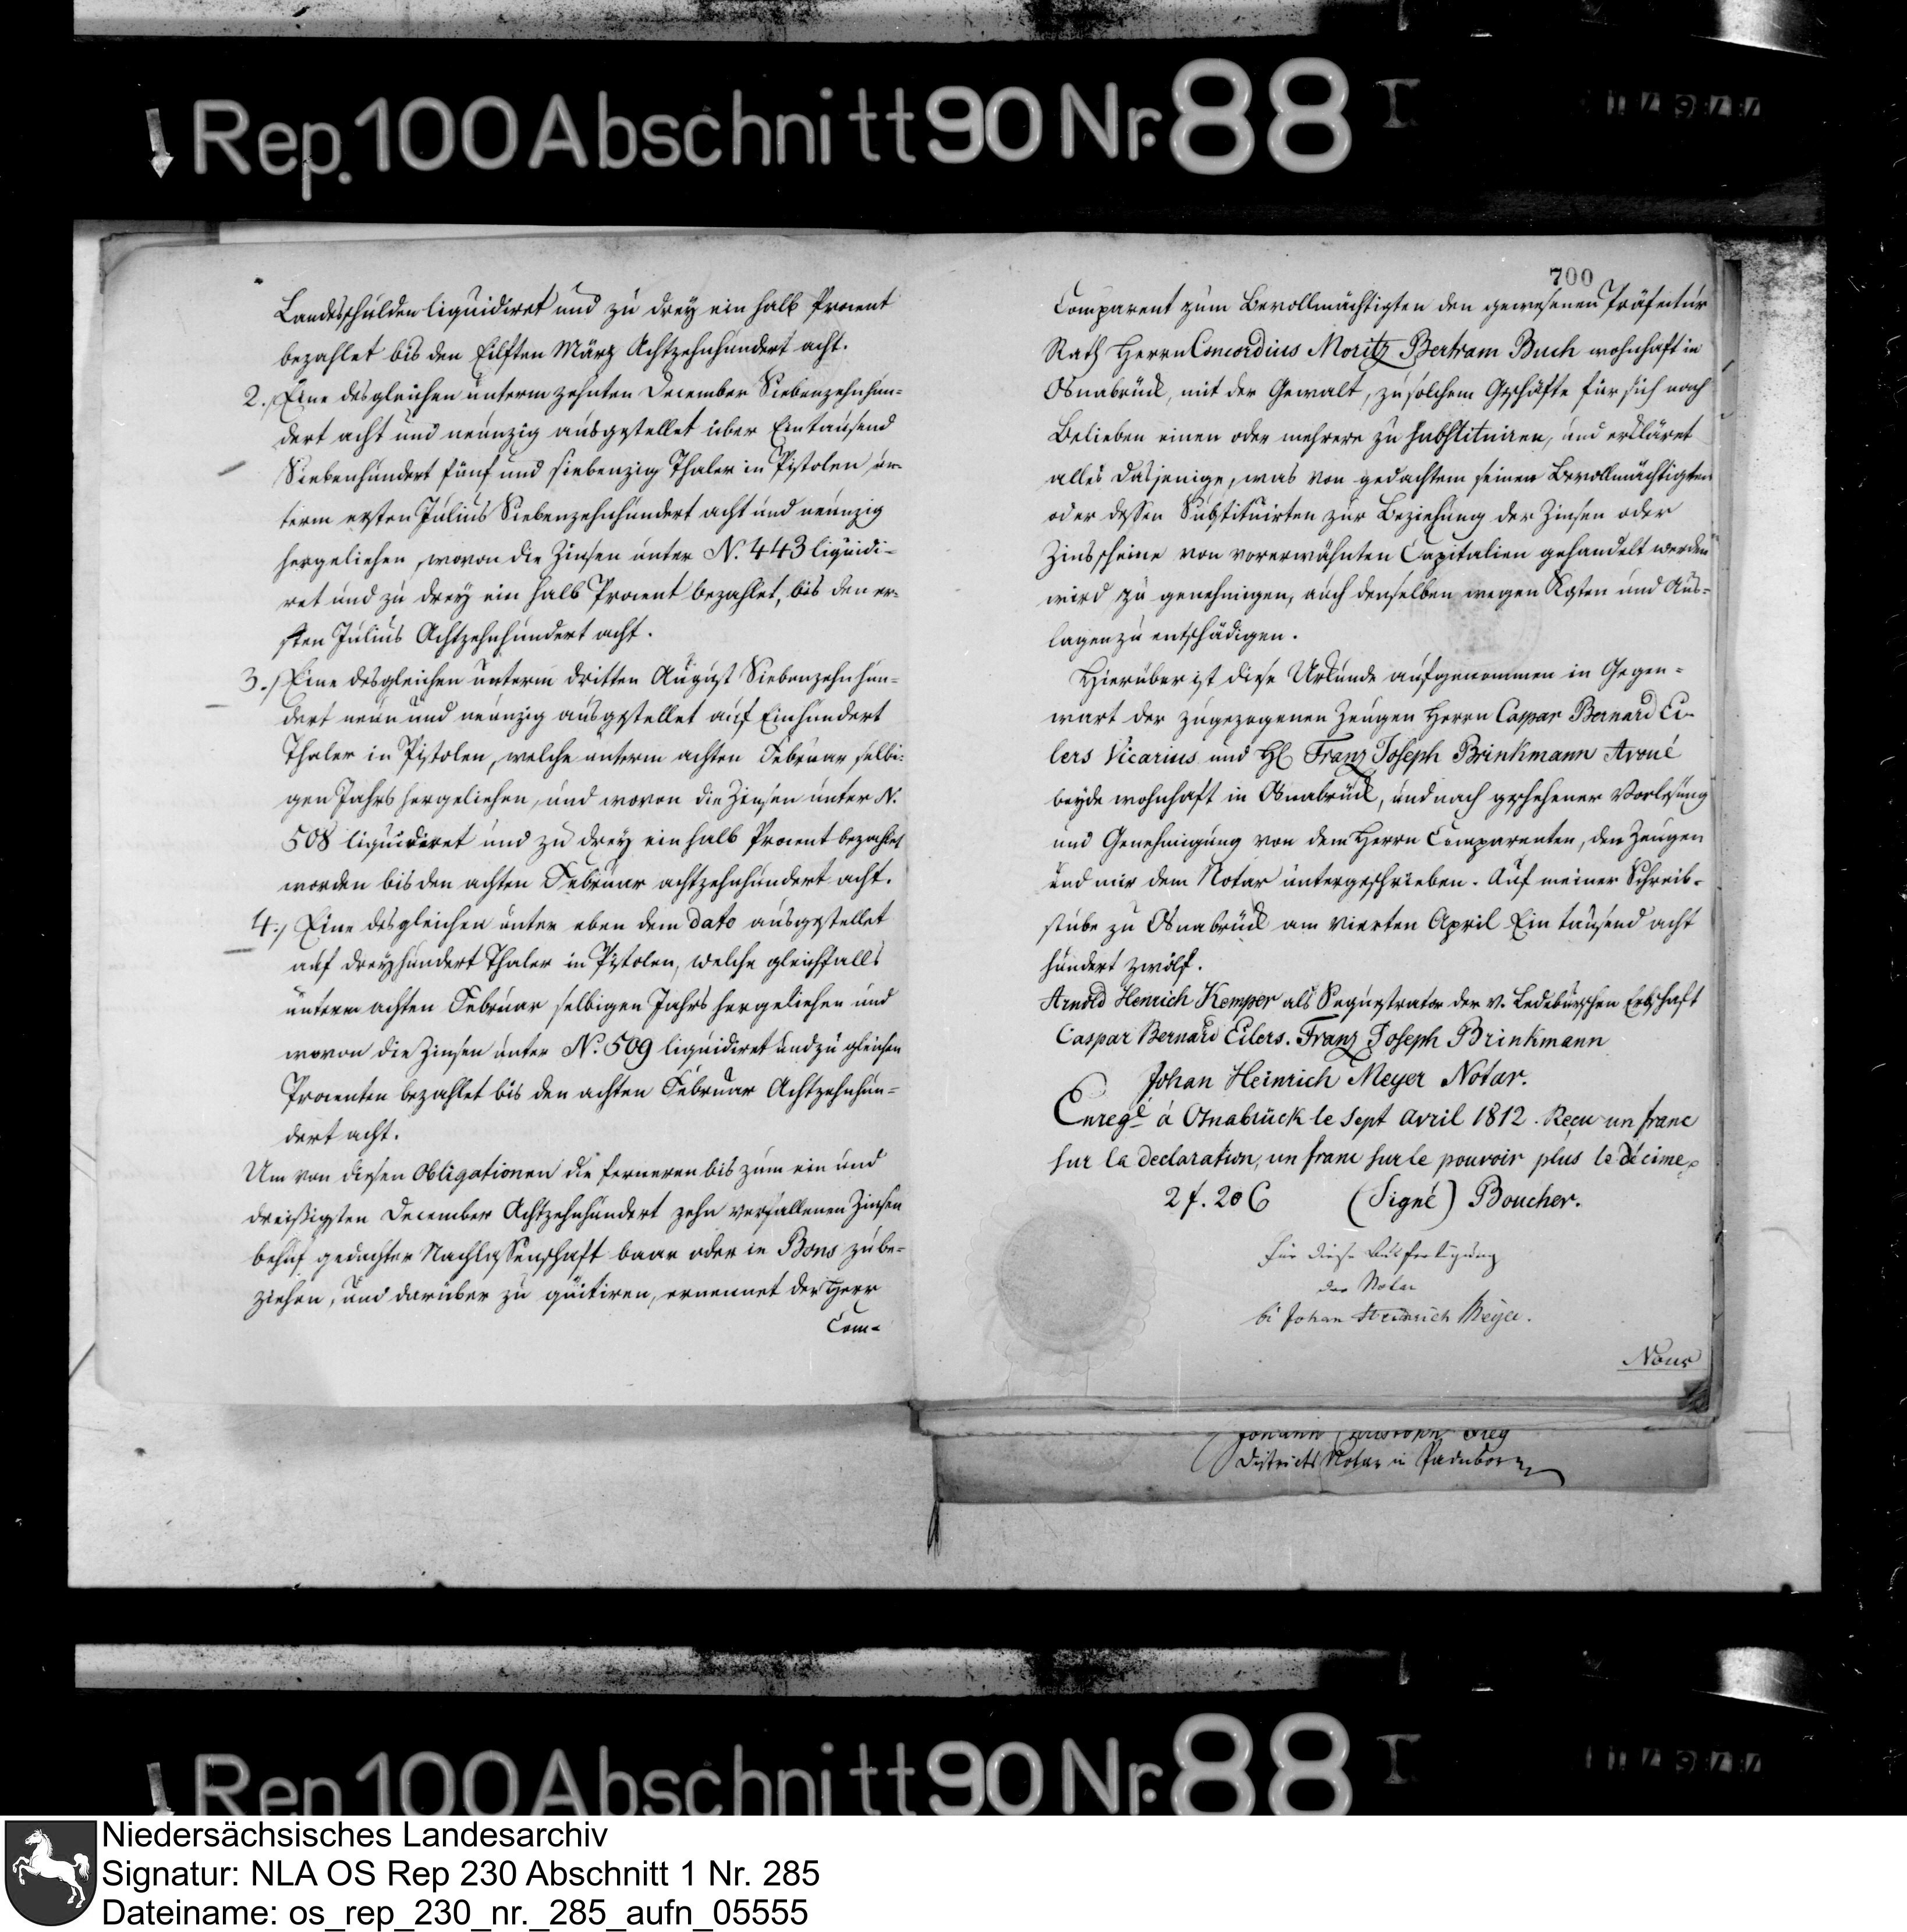 Rep. 100 Abschnitt 90 Nr. 88 I
Landesschulden liquidiret und zu drey ein halb Procent
bezahlet bis den Eilften März Achtzehnhundert acht.
2./ Eine desgleichen unterm zehnten December Siebenzehnhun-
dert acht und neunzig ausgestellet über Eintausend
Siebenhundert fünf und siebenzig Thaler in Pistolen un-
term ersten Julius Siebenzehnhundert acht und neunzig
hergeliehen, wovon die Zinsen unter N. 443 liquidi-
ret und zu drey ein halb Procent bezahlet, bis den er-
sten Julius Achtzehnhundert acht.
3./ Eine desgleichen unterm dritten August Siebenzehnhun-
dert neun und neunzig ausgestellet auf Einhundert
Thaler in Pistolen, welche unterm achten Februar selbi-
gen Jahrs hergeliehen, und wovon die Zinsen unter N.
508 liquidiret und zu drey ein halb Procent bezahlet
worden bis den achten Februar achtzehnhundert acht.
4./ Eine desgleichen unter eben dem dato ausgestellet
auf dreyhundert Thaler in Pistolen, welche gleichfalls
unterm achten Februar selbigen Jahrs hergeliehen und
wovon die Zinsen unter N. 509 liquidiret und zu gleichen
Procenten bezahlet bis den achten Februar Achtzehnhun-
dert acht.
Um von diesen Obligationen die ferneren bis zum ein und
dreißigsten December Achtzehnhundert zehn verfallenen Zinsen
behuf gedachter Nachlassenschaft baar oder in Bons zu be-
ziehen, und darüber zu quitiren, ernennet der Herr
Com-
700
Comparent zum Bevollmächtigten den gewesenen Präfectur
Rath Herrn Concordius Moritz Bertram Buch wohnhaft in
Osnabrück, mit der Gewalt, zu solchem Geschäfte für sich nach
Belieben einen oder mehrere zu substituiren, und erkläret
alles dasjenige, was von gedachtem seinen Bevollmächtigten
oder dessen Substituirten zur Beziehung der Zinsen oder
Zinsscheine von vorerwähnten Capitalien gehandelt werden
wird zu genehmigen, auch denselben wegen Kosten und Aus-
lagen zu entschädigen.
Hierüber ist diese Urkunde aufgenommen in Gegen-
wart der zugezogenen Zeugen Herrn Caspar Bernard Ei-
lers Vicarius und H. Franz Joseph Brinkmann Avoué
beyde wohnhaft in Osnabrück, und nach geschehener Vorlesung
und Genehmigung von dem Herrn Comparenten, den Zeugen
und mir dem Notar untergeschrieben. Auf meiner Schreib-
stube zu Osnabrück am vierten April Ein tausend acht
hundert zwölf.
Arnold Henrich Kemper als Sequestrator der v. Ledeburschen Erbschaft
Caspar Bernard Eilers. Franz Joseph Brinkmann
Johan Heinrich Meyer Notar.
Enregé à Osnabrück le Sept avril 1812. Reçu un franc
sur la declaration, un franc sur le pouvoir plus le décime
2 f. 20 C (Signé) Boucher.
für diese Ausfertigung
der Notar
Johan Heinrich Meyer.
Nous
Districts Notar in Paderborn
Rep 100 Abschnitt 90 Nr. 88 I
Niedersächsisches Landesarchiv
Signatur: NLA OS Rep 230 Abschnitt 1 Nr. 285
Dateiname: os_rep_230_nr._285_aufn_05555